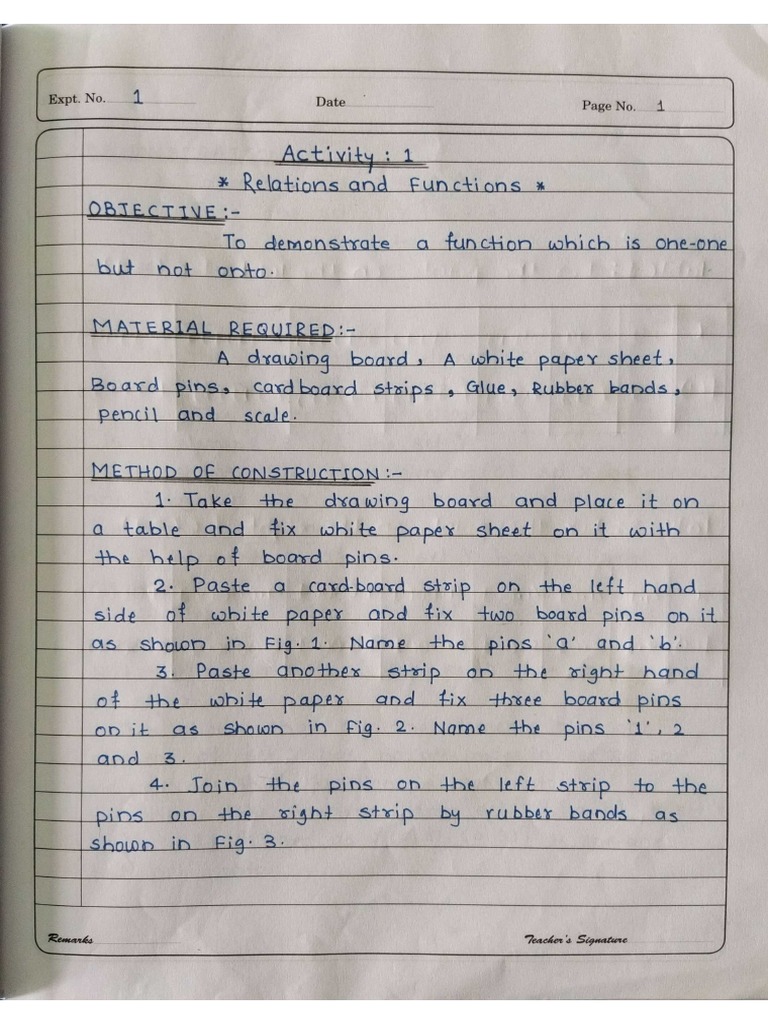 Expt. No. 1 Date Page No. 1
Activity : 1
* Relations and Functions *
OBJECTIVE :-
To demonstrate a function which is one-one
but not onto.
MATERIAL REQUIRED:-
A drawing board, A white paper sheet,
Board pins, cardboard strips, Glue, Rubber bands,
pencil and scale.
METHOD OF CONSTRUCTION:-
1. Take the drawing board and place it on
a table and fix white paper sheet on it with
the help of board pins.
2. Paste a card-board strip on the left hand
side of white paper and fix two board pins on it
as shown in Fig. 1. Name the pins 'a' and 'b'.
3. Paste another strip on the right hand
of the white paper and fix three board pins
on it as shown in Fig. 2. Name the pins '1', 2
and 3.
4. Join the pins on the left strip to the
pins on the right strip by rubber bands as
shown in Fig. 3.
Remarks Teacher's Signature